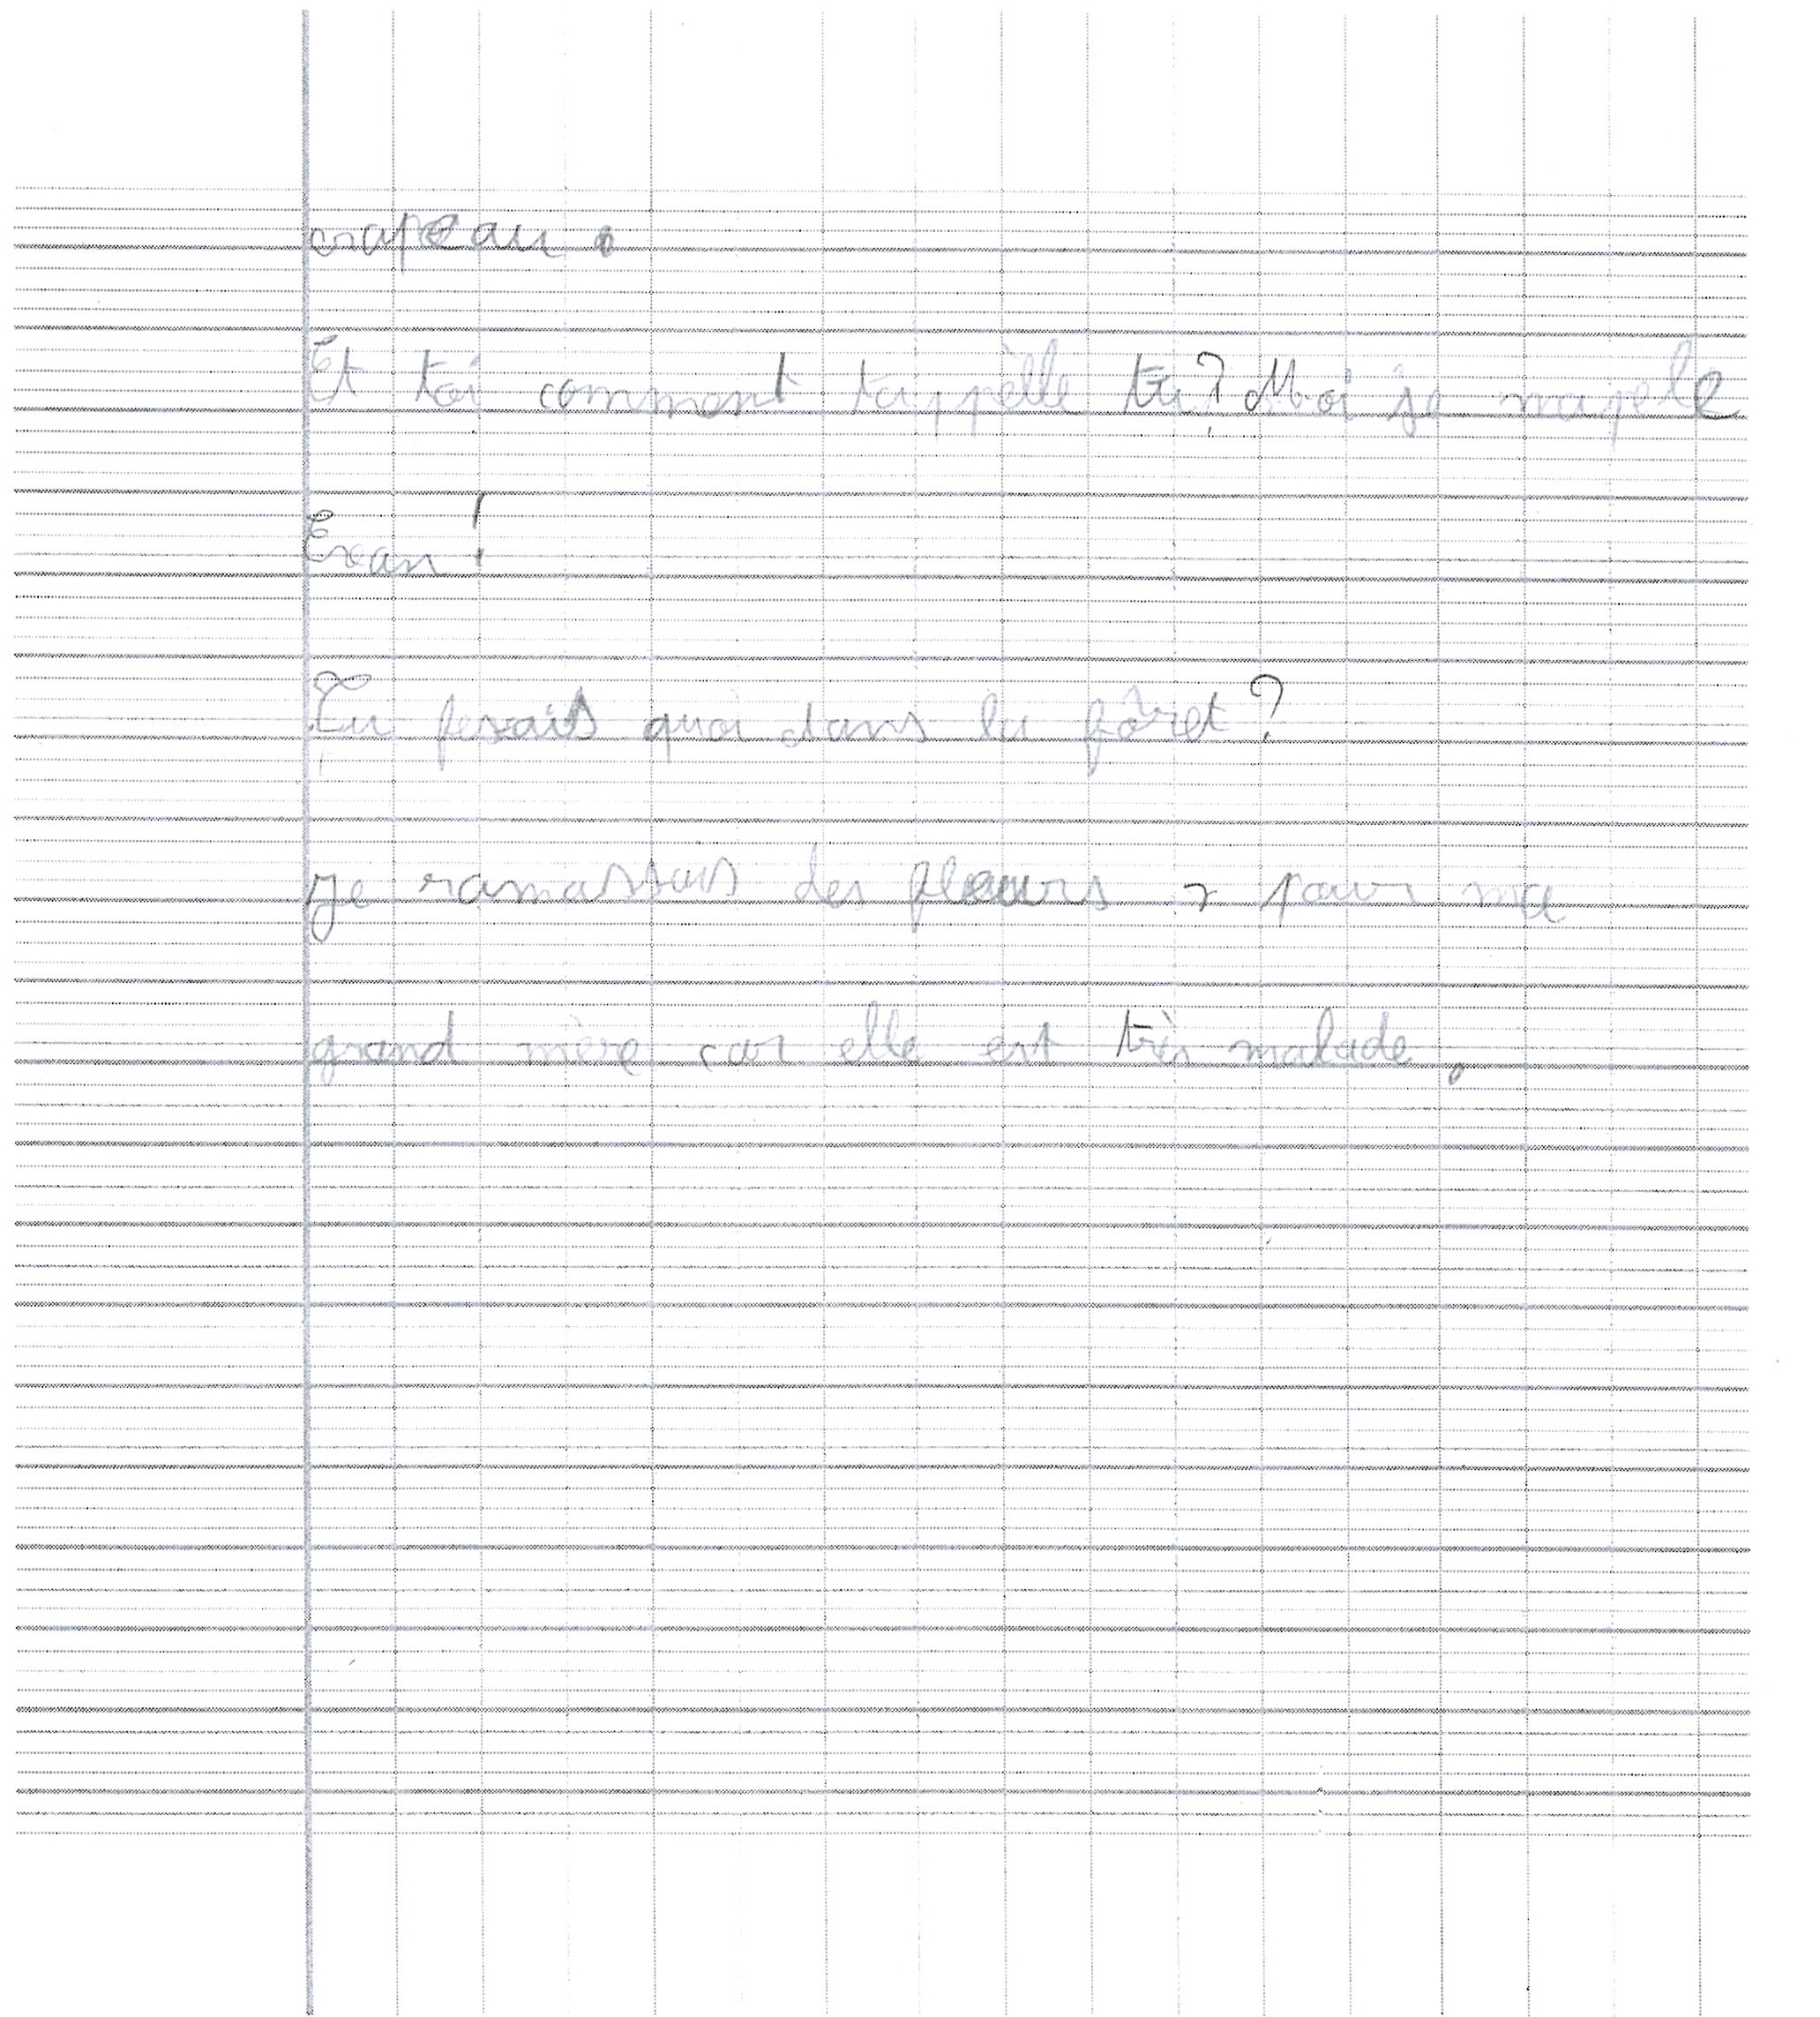 crapeau.
Et toi comment tappèlle tu? Moi je mapele
Exan!
Tu fesais quoi dans la fôret?
Je ramassais des fleurs, pour ma
grand mère car elle est très malade.